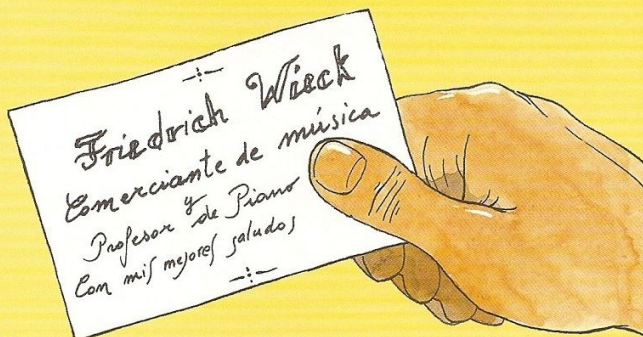 Friedrich Wieck
Comerciante de música
y
Profesor de Piano
Con mis mejores saludos